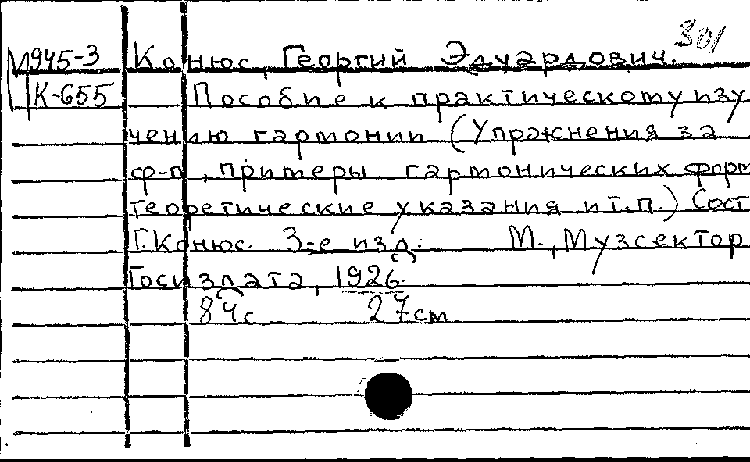 301
945-3 Конюс, Георгий Эдуардович.
К-655 Пособие к практическому изу
чению гармонии (Упражнения за
ф-п, примеры гармонических форм
теоретические указания и т.п.) Сост
Г. Конюс. 3-е изд. М., Музсектор
Госиздата, 1926.
84с 27см